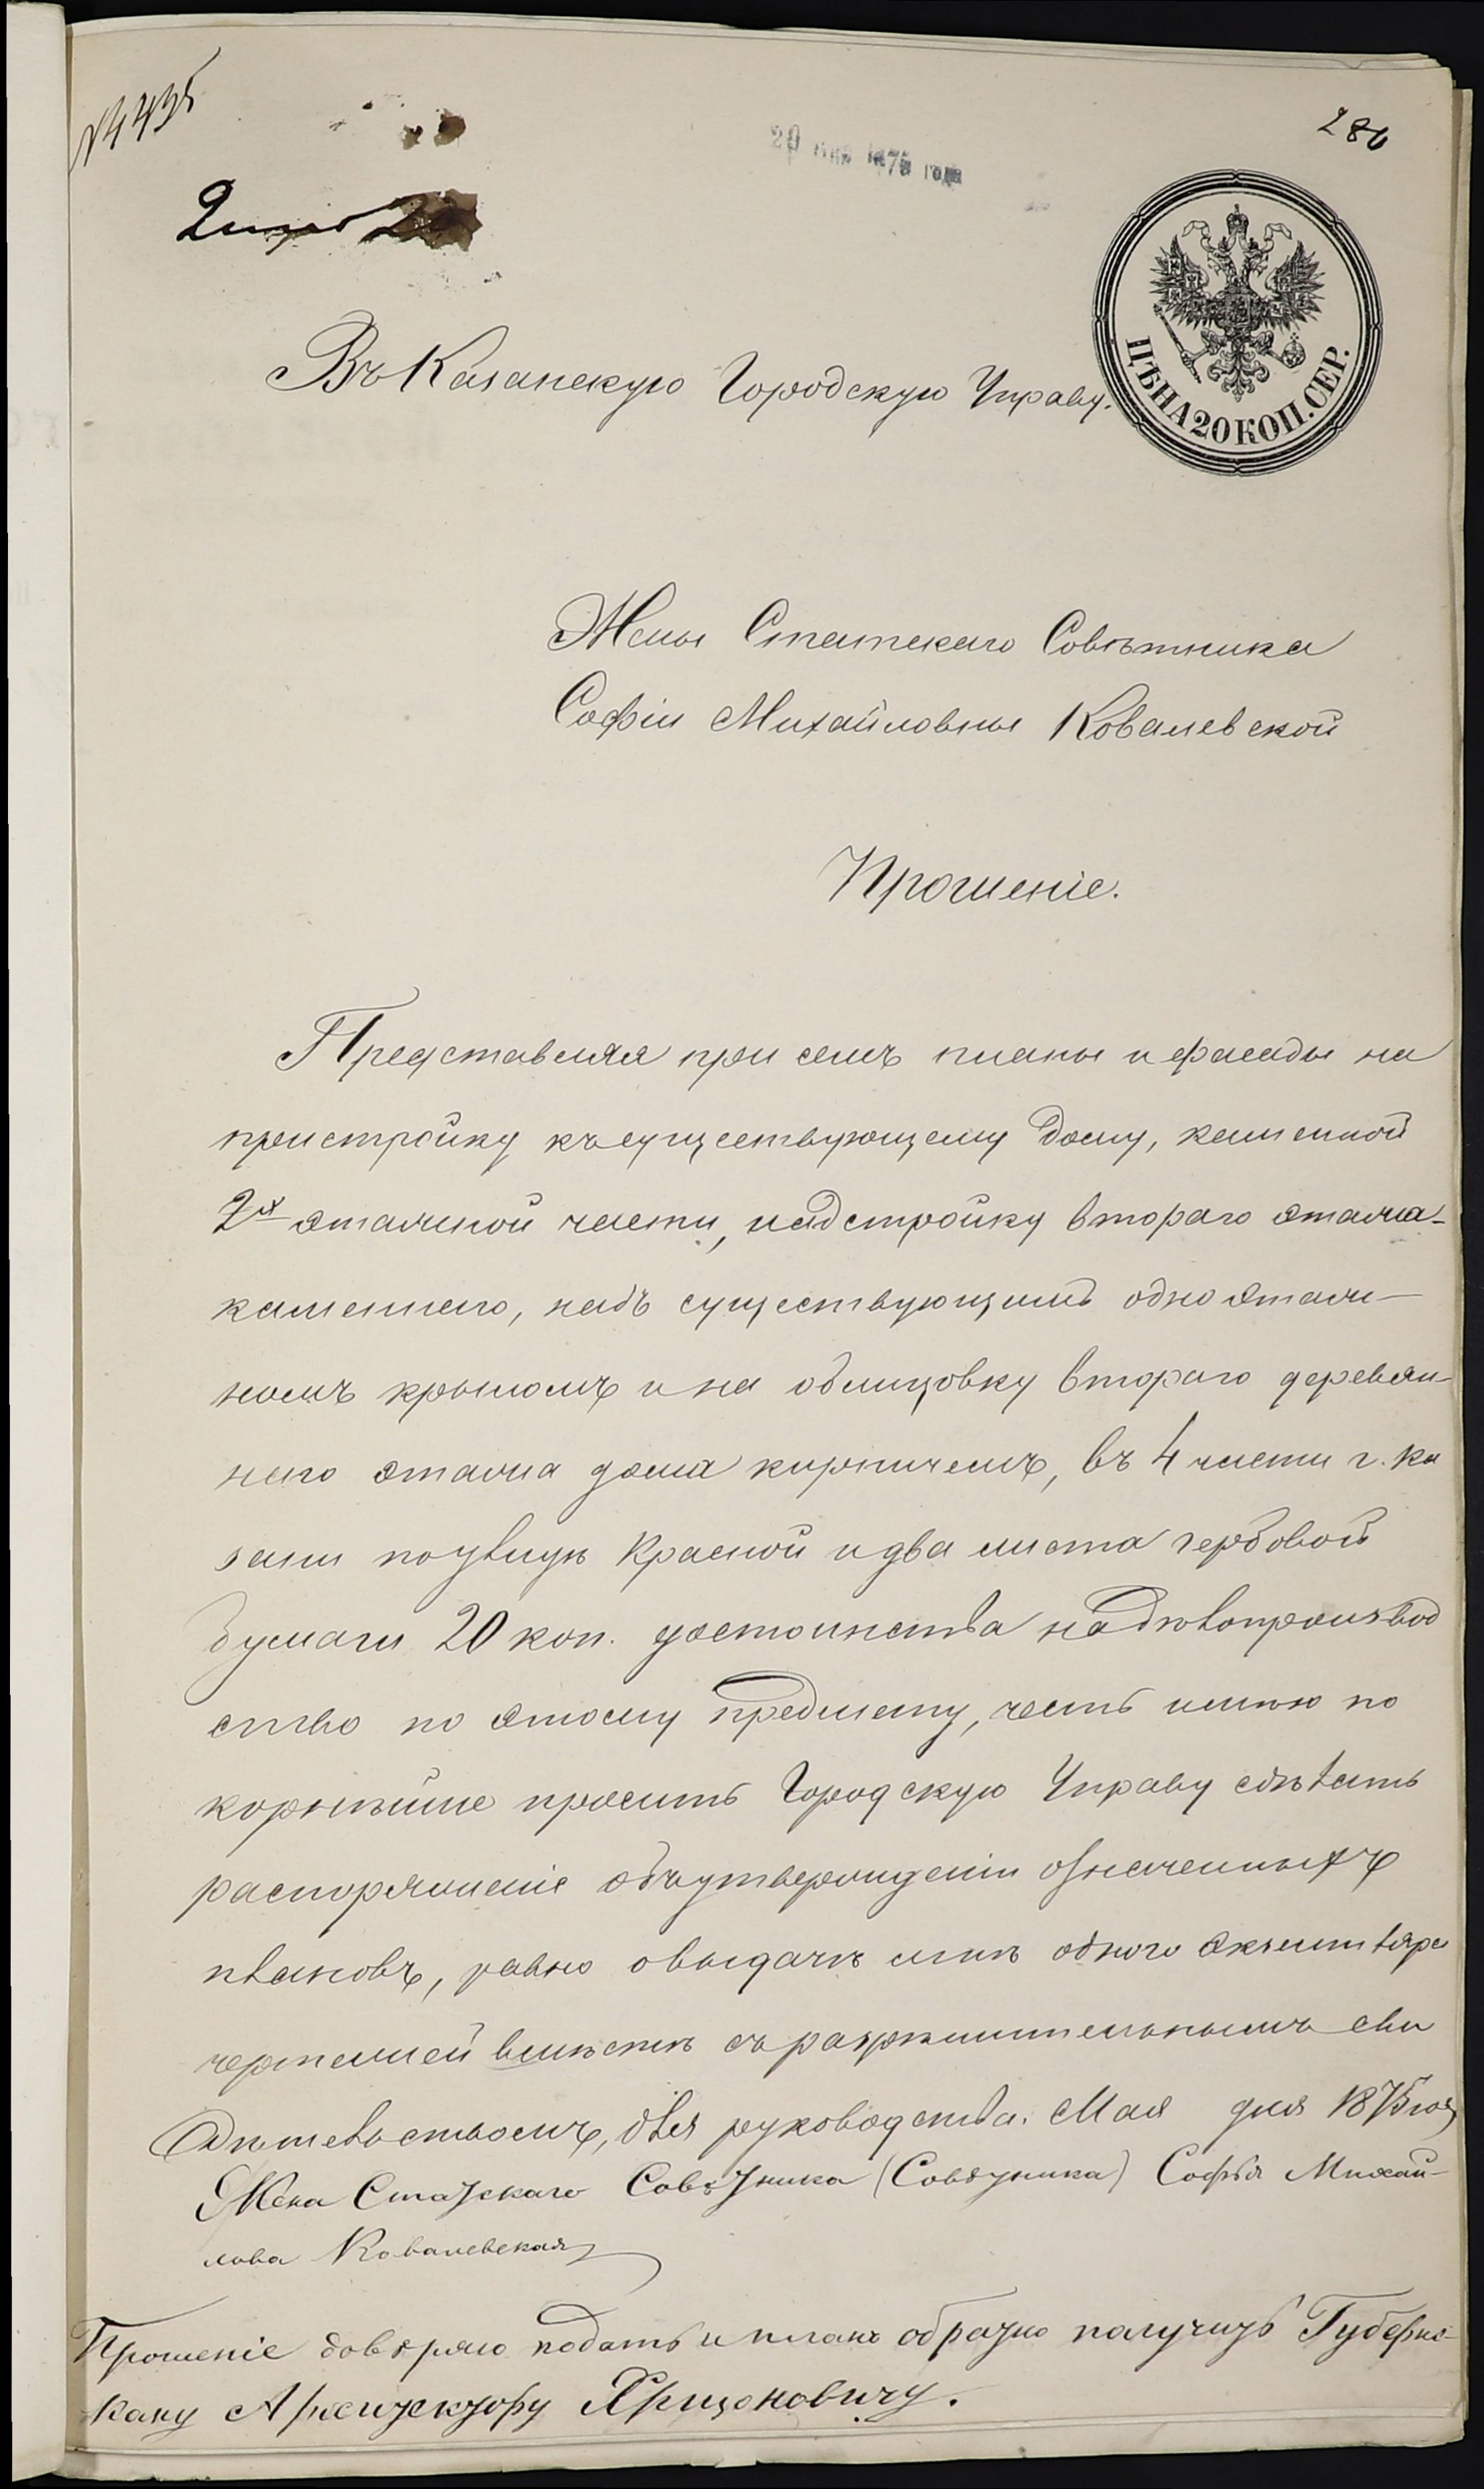 № 4435
280
20 мая 1875 года
ЦѢНА 20 КОП. СЕР.
Въ Казанскую Городскую Управу.
Жены Статскаго Совѣтника
Софіи Михайловны Ковалевской
Прошеніе.
Представляя при семъ планы и фасады на
пристройку къ существующему дому, каменной
2х этажной части, надстройку втораго этажа
каменнаго, надъ существующимъ одноэтаж-
номъ крыломъ и на облицовку втораго деревян-
наго этажа дома кирпичемъ, въ 4 части г. Ка
зани по улицѣ Красной и два листа гербовой
бумаги 20 коп. достоинства на дѣлопроизвод
ство по этому предмету, честь имѣю по
корнѣйше просить Городскую Управу сдѣлать
распоряженіе объ утвержденіи означенныхъ
плановъ, равно о выдачѣ мнѣ одного экземпляра
чертежей вмѣстѣ съ разрѣшительнымъ сви
дѣтельствомъ, для руководства. Мая дня 1875 года
Жена Статскаго Совѣтника (Совѣтника) Софья Михай-
лова Ковалевская
Прошеніе довѣряю подать и планъ обратно получить Губернс-
кому Архитектору Хрщоновичу.